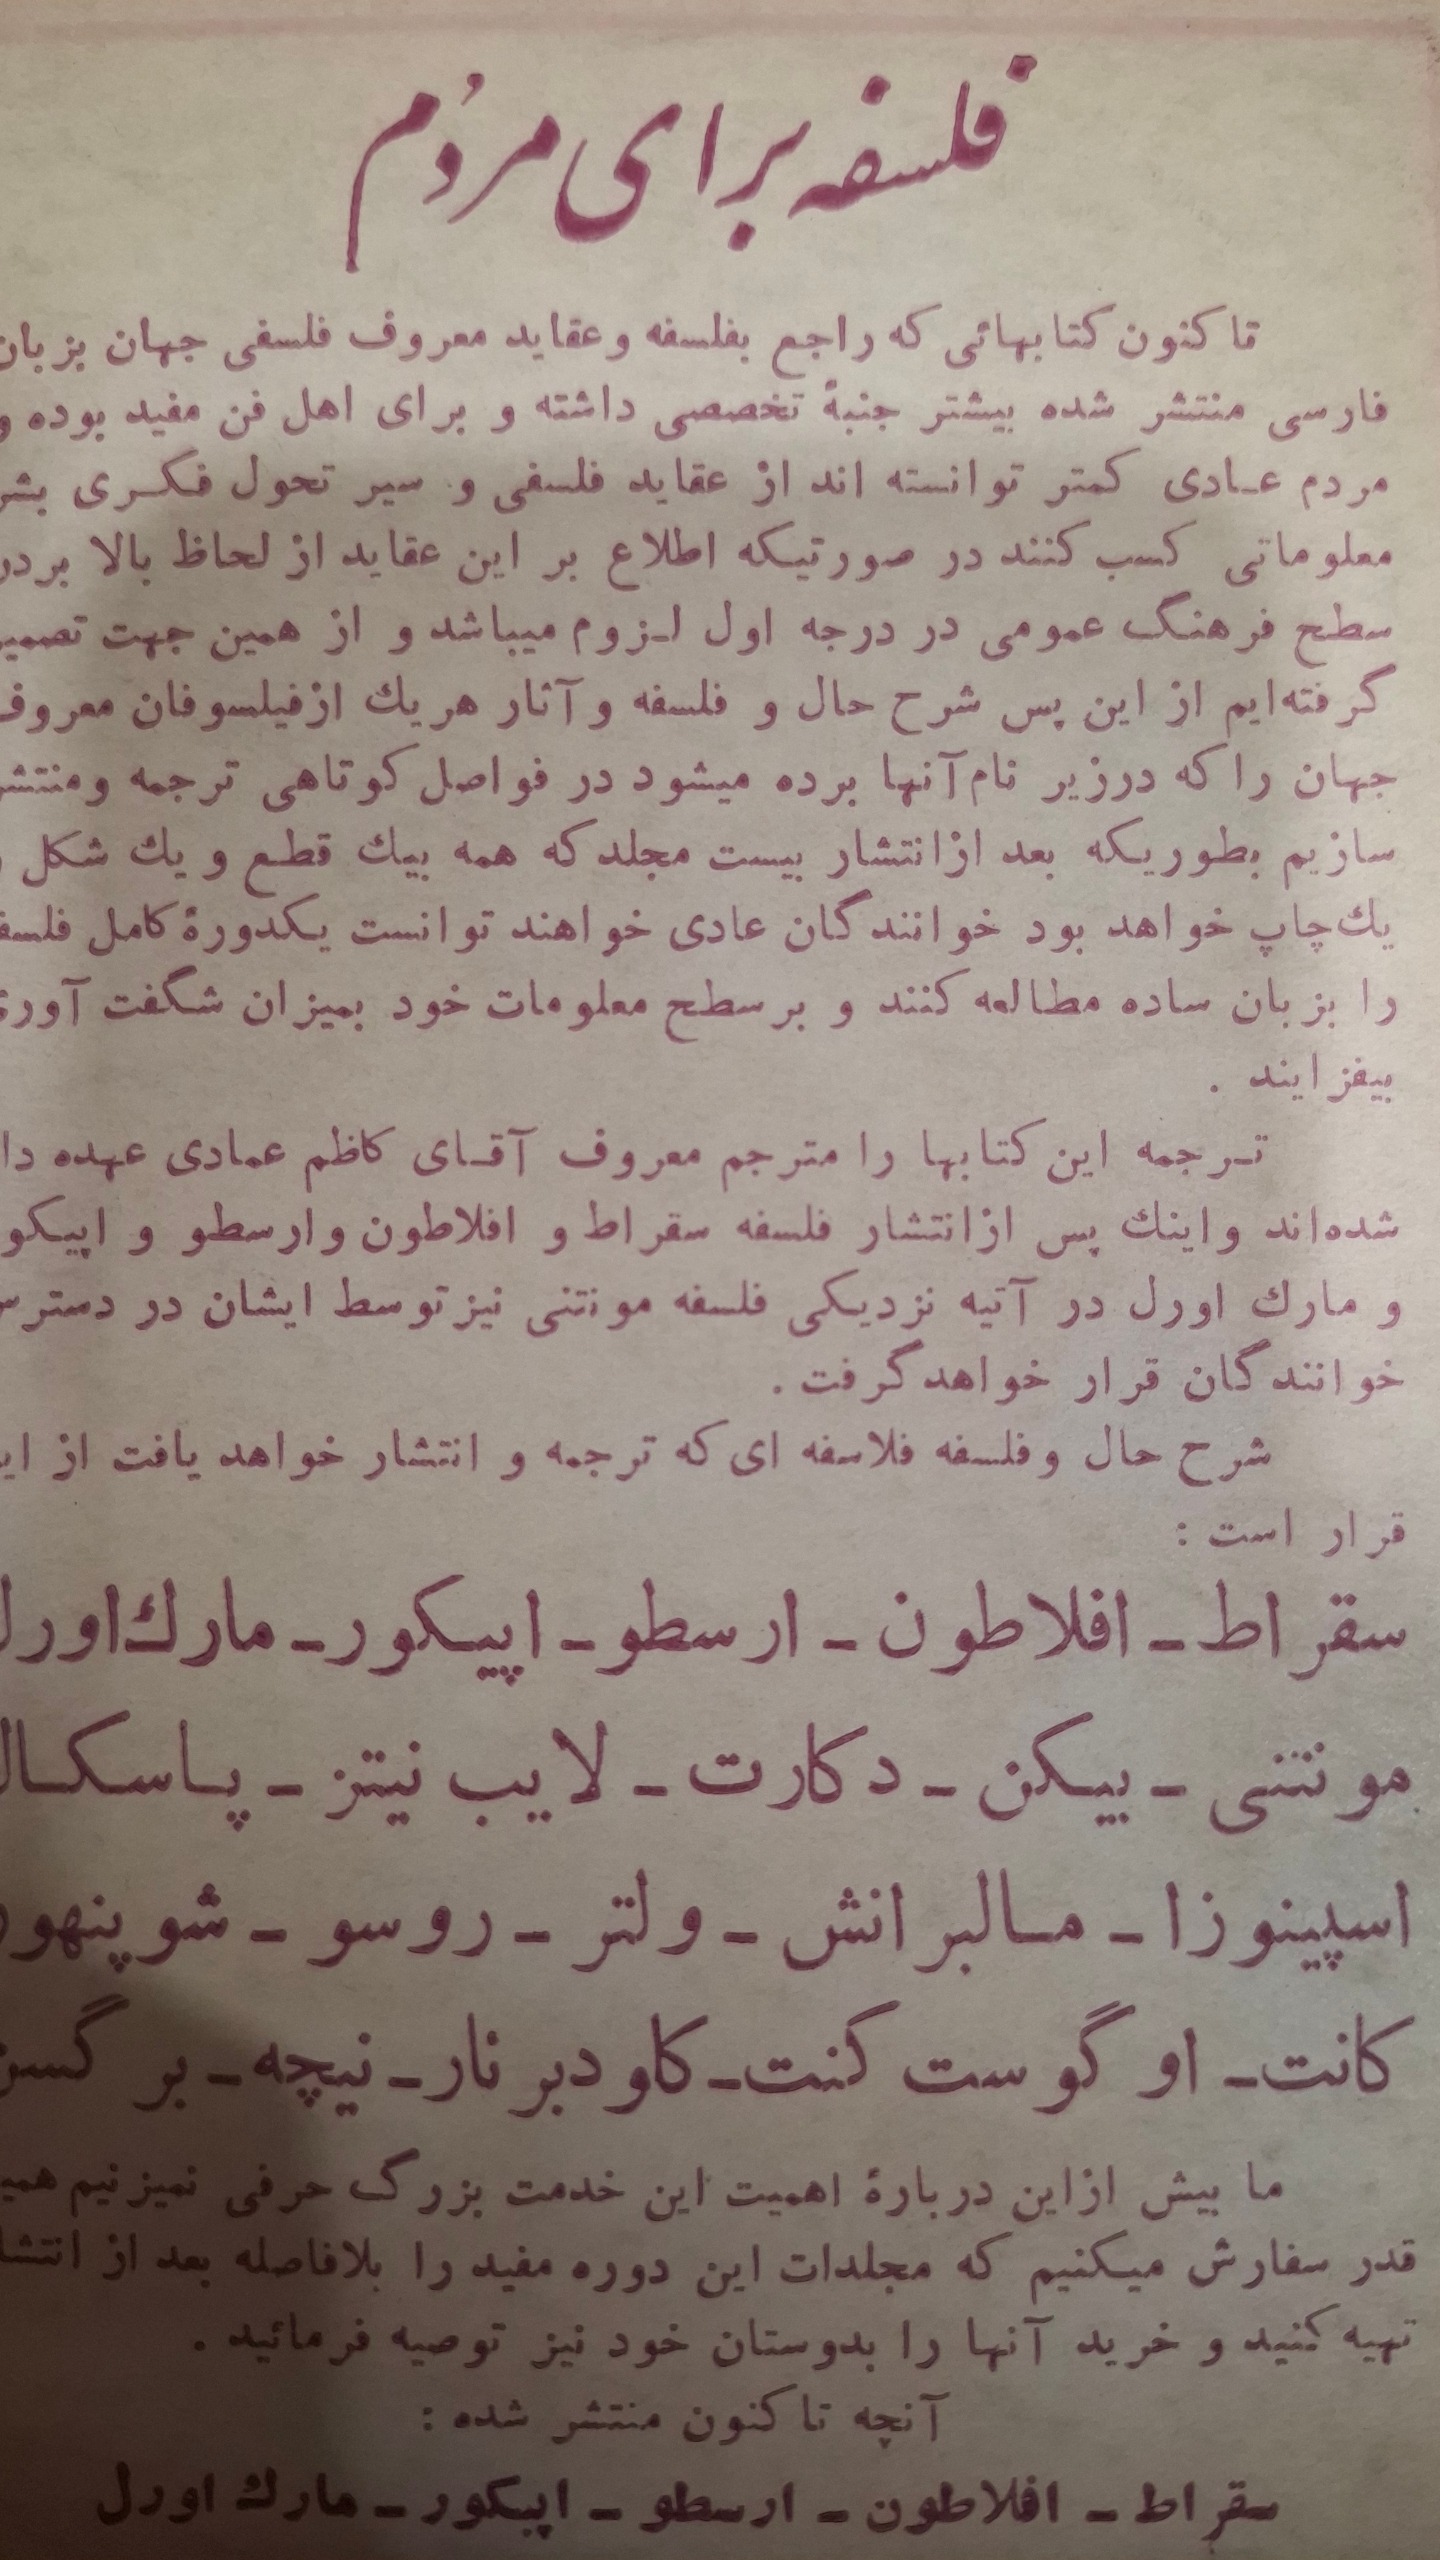 فلسفه برای مردم
تا کنون کتابهائی که راجع بفلسفه و عقاید معروف فلسفی جهان بزبان
فارسی منتشر شده بیشتر جنبهٔ تخصصی داشته و برای اهل فن مفید بوده و
مردم عـادی کمتر توانسته اند از عقاید فلسفی و سیر تحول فـکـری بشر
معلوماتی کسب کنند در صورتیـکه اطلاع بر این عقاید از لحاظ بالا بردن
سطح فرهنگ عمومی در درجه اول لـزوم میباشد و از همین جهت تصمیم
گرفته‌ایم از این پس شرح حال و فلسفه و آثار هریك از فیلسوفان معروف
جهان را که درزیر نام آنها برده میشود در فواصل کوتاهی ترجمه و منتشر
سازیم بطوریـکه بعد از انتشار بیست مجلد که همه بیك قطـع و یك شکل
یك چاپ خواهد بود خوانندگان عادی خواهند توانست یـکدورهٔ کامل فلسفه
را بزبان ساده مطالعه کنند و بر سطح معلومات خود بمیزان شگفت آوری
بیفزایند .
تـرجمه این کتابها را مترجم معروف آقـای کاظم عمادی عهده دار
شده‌اند و اینك پس از انتشار فلسفه سقراط و افلاطون و ارسطو و اپیکور
و مارك اورل در آتیه نزدیـکی فلسفه مونتنی نیز توسط ایشان در دسترس
خوانندگان قرار خواهد گرفت .
شرح حال و فلسفه فلاسفه ای که ترجمه و انتشار خواهد یافت از این
قرار است :
سقراط ـ افلاطون ـ ارسطو ـ اپیـکور ـ مارك اورل
مونتنی ـ بیـکن ـ دکارت ـ لایب نیتز ـ پـاسـکـال
اسپینوزا ـ مـالبرانش ـ ولتر ـ روسو ـ شوپنهور
کانت ـ اوگوست کنت ـ کاودبرنار ـ نیچه ـ برگسن
ما بیش از این دربارهٔ اهمیت این خدمت بزرگ حرفی نمیزنیم همین
قدر سفارش میـکنیم که مجلدات این دوره مفید را بلافاصله بعد از انتشار
تهیه کنید و خرید آنها را بدوستان خود نیز توصیه فرمائید .
آنچه تا کنون منتشر شده :
سقراط ـ افلاطون ـ ارسطو ـ اپیکور ـ مارك اورل